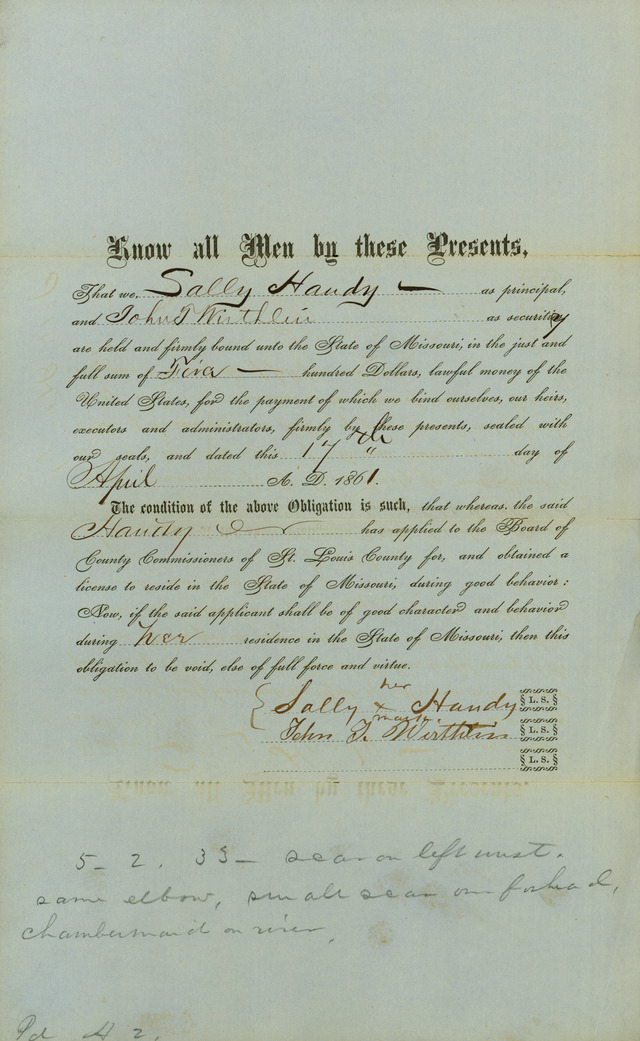 Know all Men by these Presents,
That we, Sally Handy — as principal,
and John T Wirthlin as security
are held and firmly bound unto the State of Missouri, in the just and
full sum of Five — hundred Dollars, lawful money of the
United States, for the payment of which we bind ourselves, our heirs,
executors and administrators, firmly by these presents, sealed with
our seals, and dated this 17th day of
April A. D. 1861.
The condition of the above Obligation is such, that whereas, the said
Handy has applied to the Board of
County Commissioners of St. Louis County for, and obtained a
license to reside in the State of Missouri, during good behavior:
Now, if the said applicant shall be of good character and behavior
during her residence in the State of Missouri, then this
obligation to be void, else of full force and virtue.
her
Sally x Handy § L. S. §
mark
John T. Wirthlin § L. S. §
§ L. S. §
5-2. 33- scar on left wrist.
same elbow, small scar on forhead,
chambermaid on river,
Pd H 2.